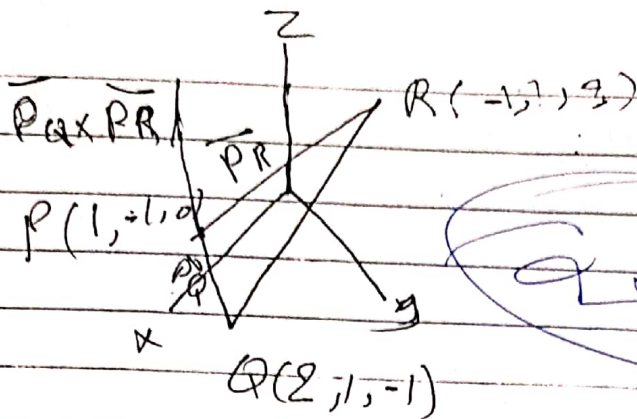 Z
PQ × PR
PR
R(-1,1,2)
P(1,-1,0)
PQ
x
y
Q(2,1,-1)